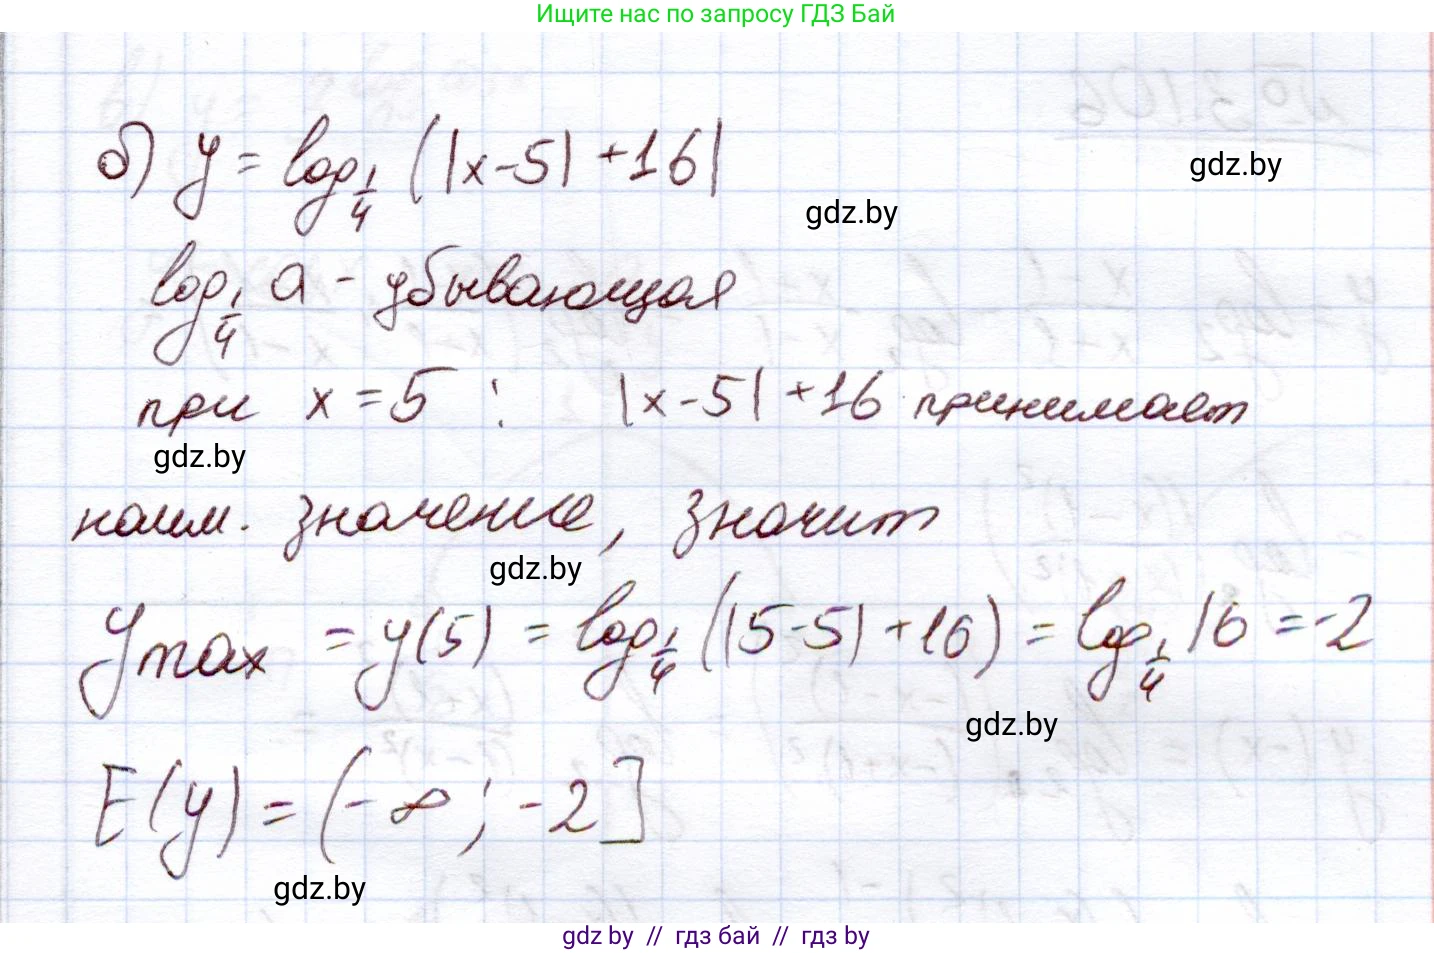 Ищите нас по запросу ГДЗ Бай
б) y = log 1/4 (|x-5| +16|
gdz.by
gdz.by
log 1/4 a - убывающая
при x = 5 : |x-5| +16 принимает
gdz.by
наим. значение, значит
gdz.by
y max = y(5) = log 1/4 (|5-5| +16) = log 1/4 16 = -2
gdz.by
E(y) = (-∞; -2]
gdz.by
gdz by // гдз бай // гдз by